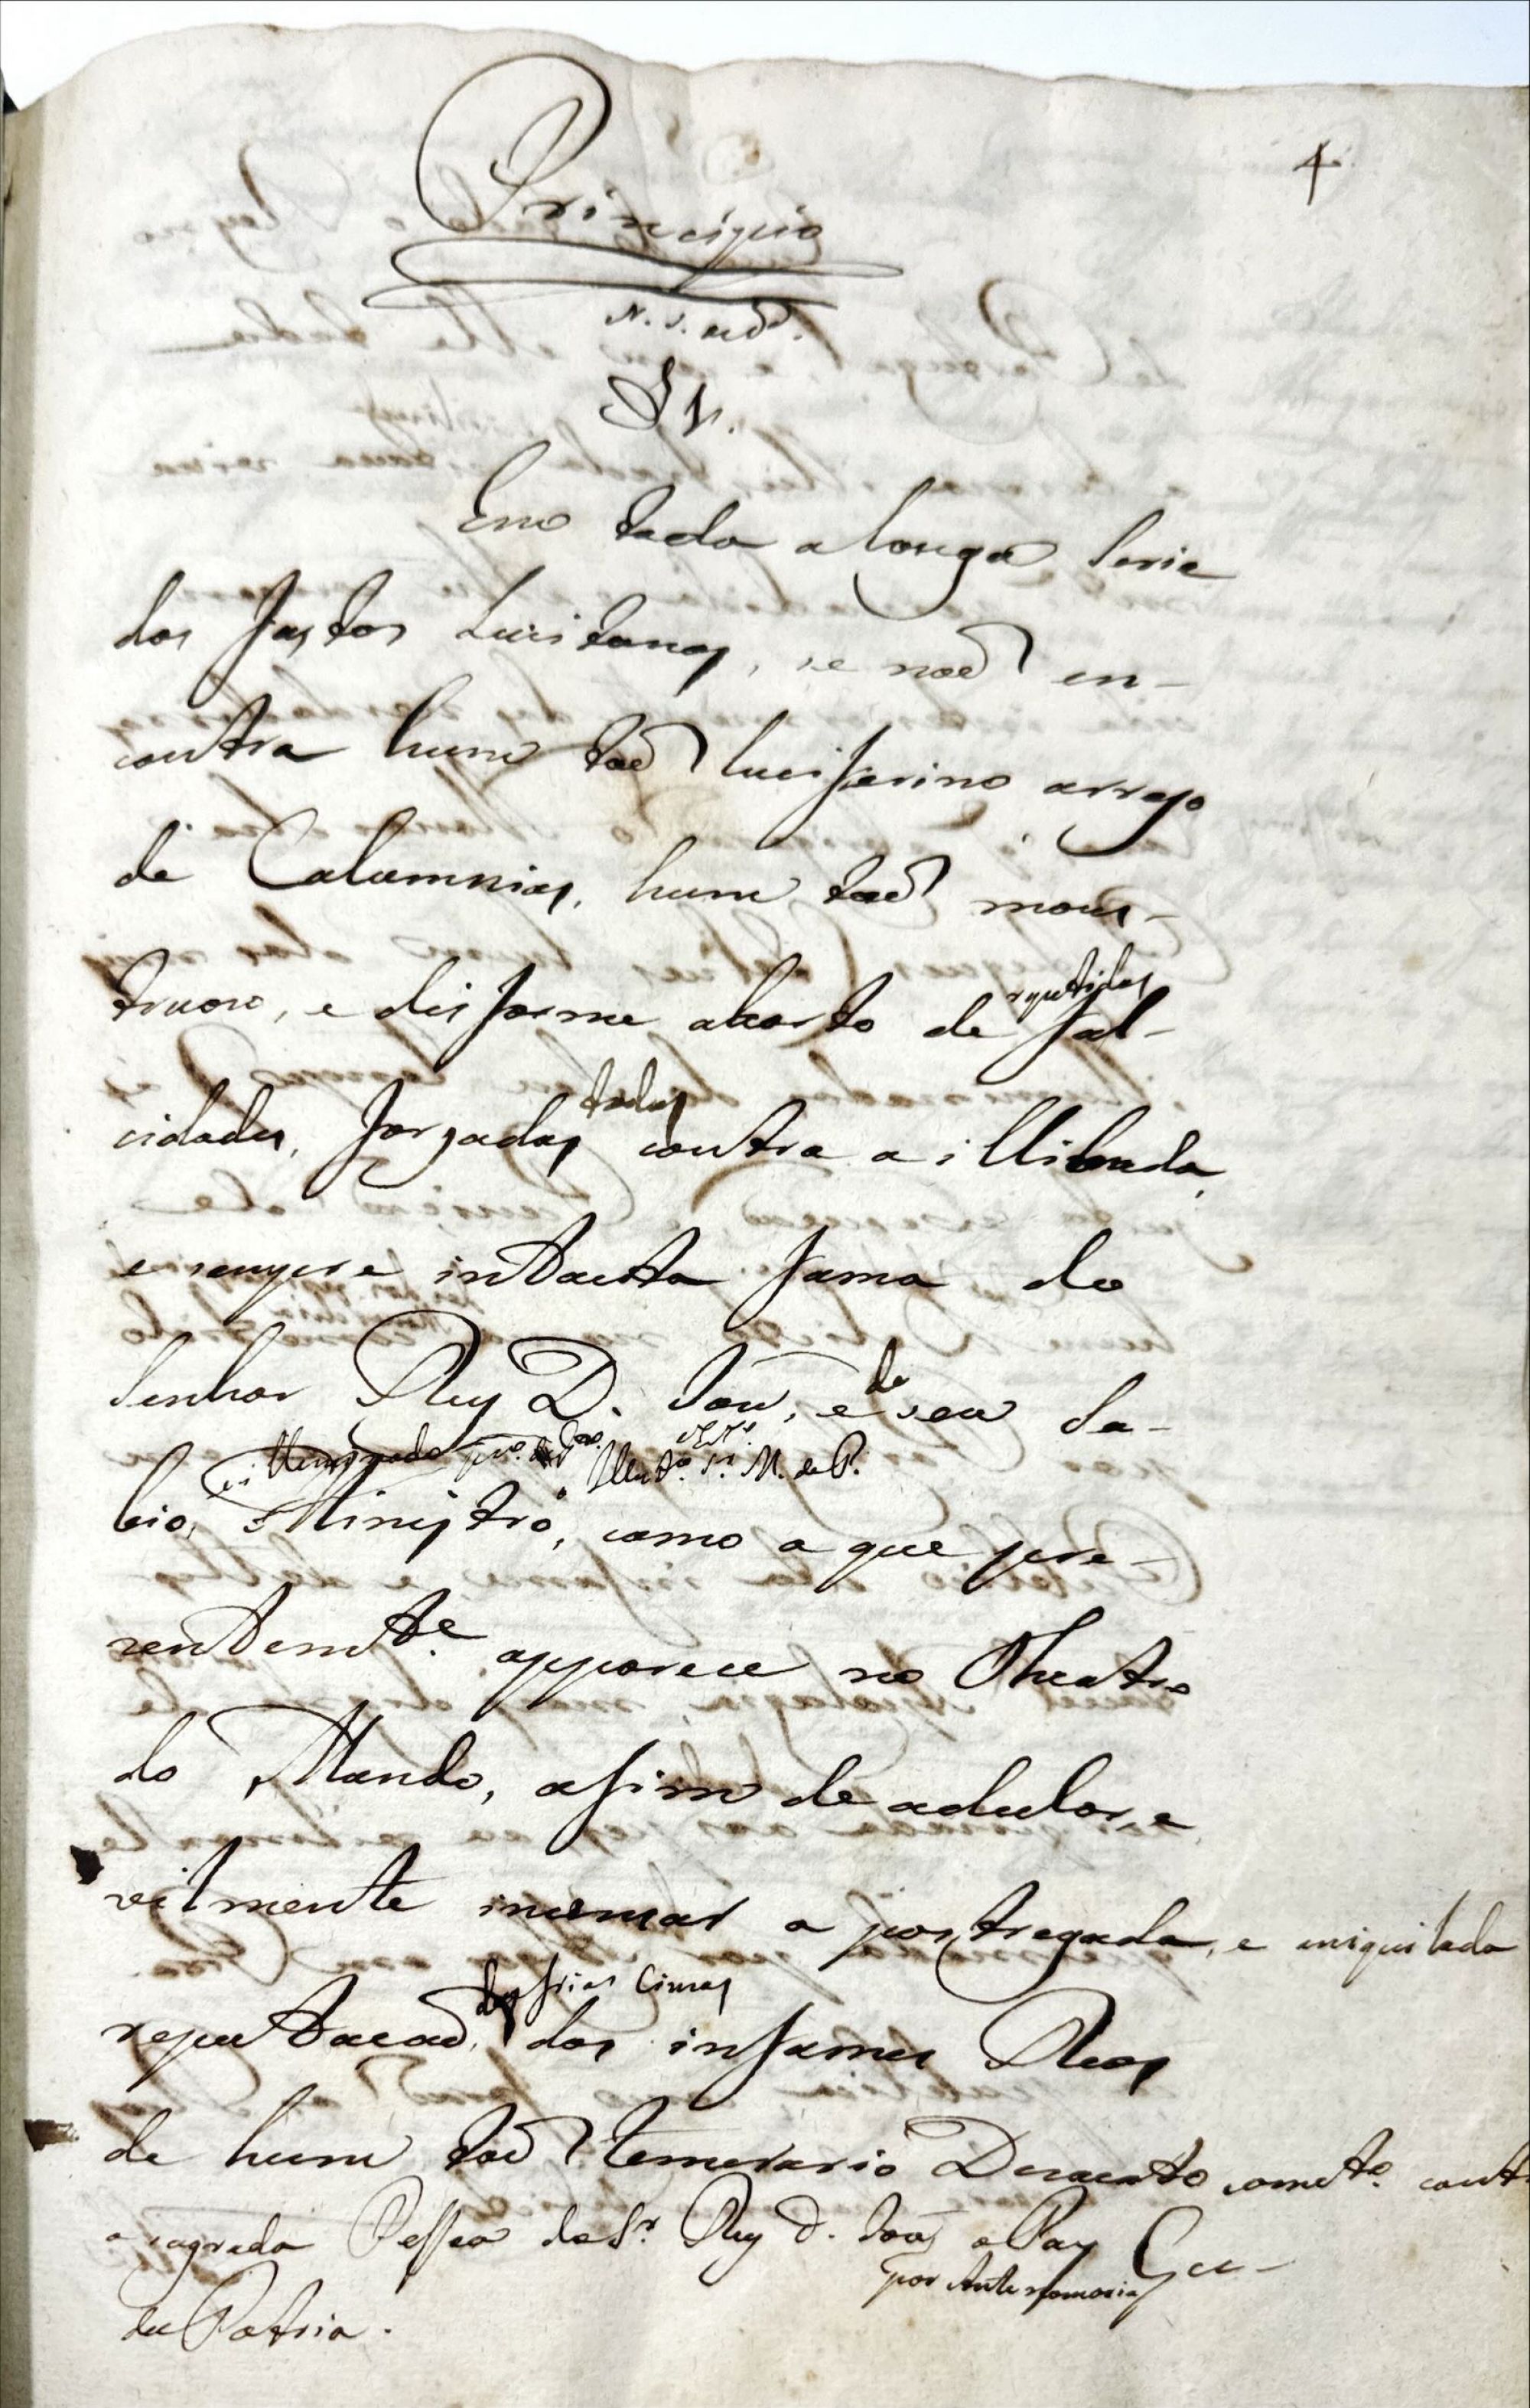 4
Principio
§ 1.
Em toda a longa serie
dos fastos Lusitanos, se naõ en-
contra hum taõ luciferino arrojo
de Calumnias, hum taõ mons-
truoso, e disforme aborto de repetidas fal-
cidades, forjadas todas contra a illibada,
e sempre intacta fama do
Senhor Rey D. Joze, e do seu Sa-
bio, Ministro, como a que pre-
zentemte. apparece no Theatro
do Mundo, afim de adular, e
vilmente incensar a postregada, e aniquilada
reputacaõ, das frias Cinzas dos infames Reos
de hum taõ temerario Dezacato cometo. cont
a sagrada Pessoa do Sr. Rey D. Joze o Pay
por Antenomazia
da Patria.